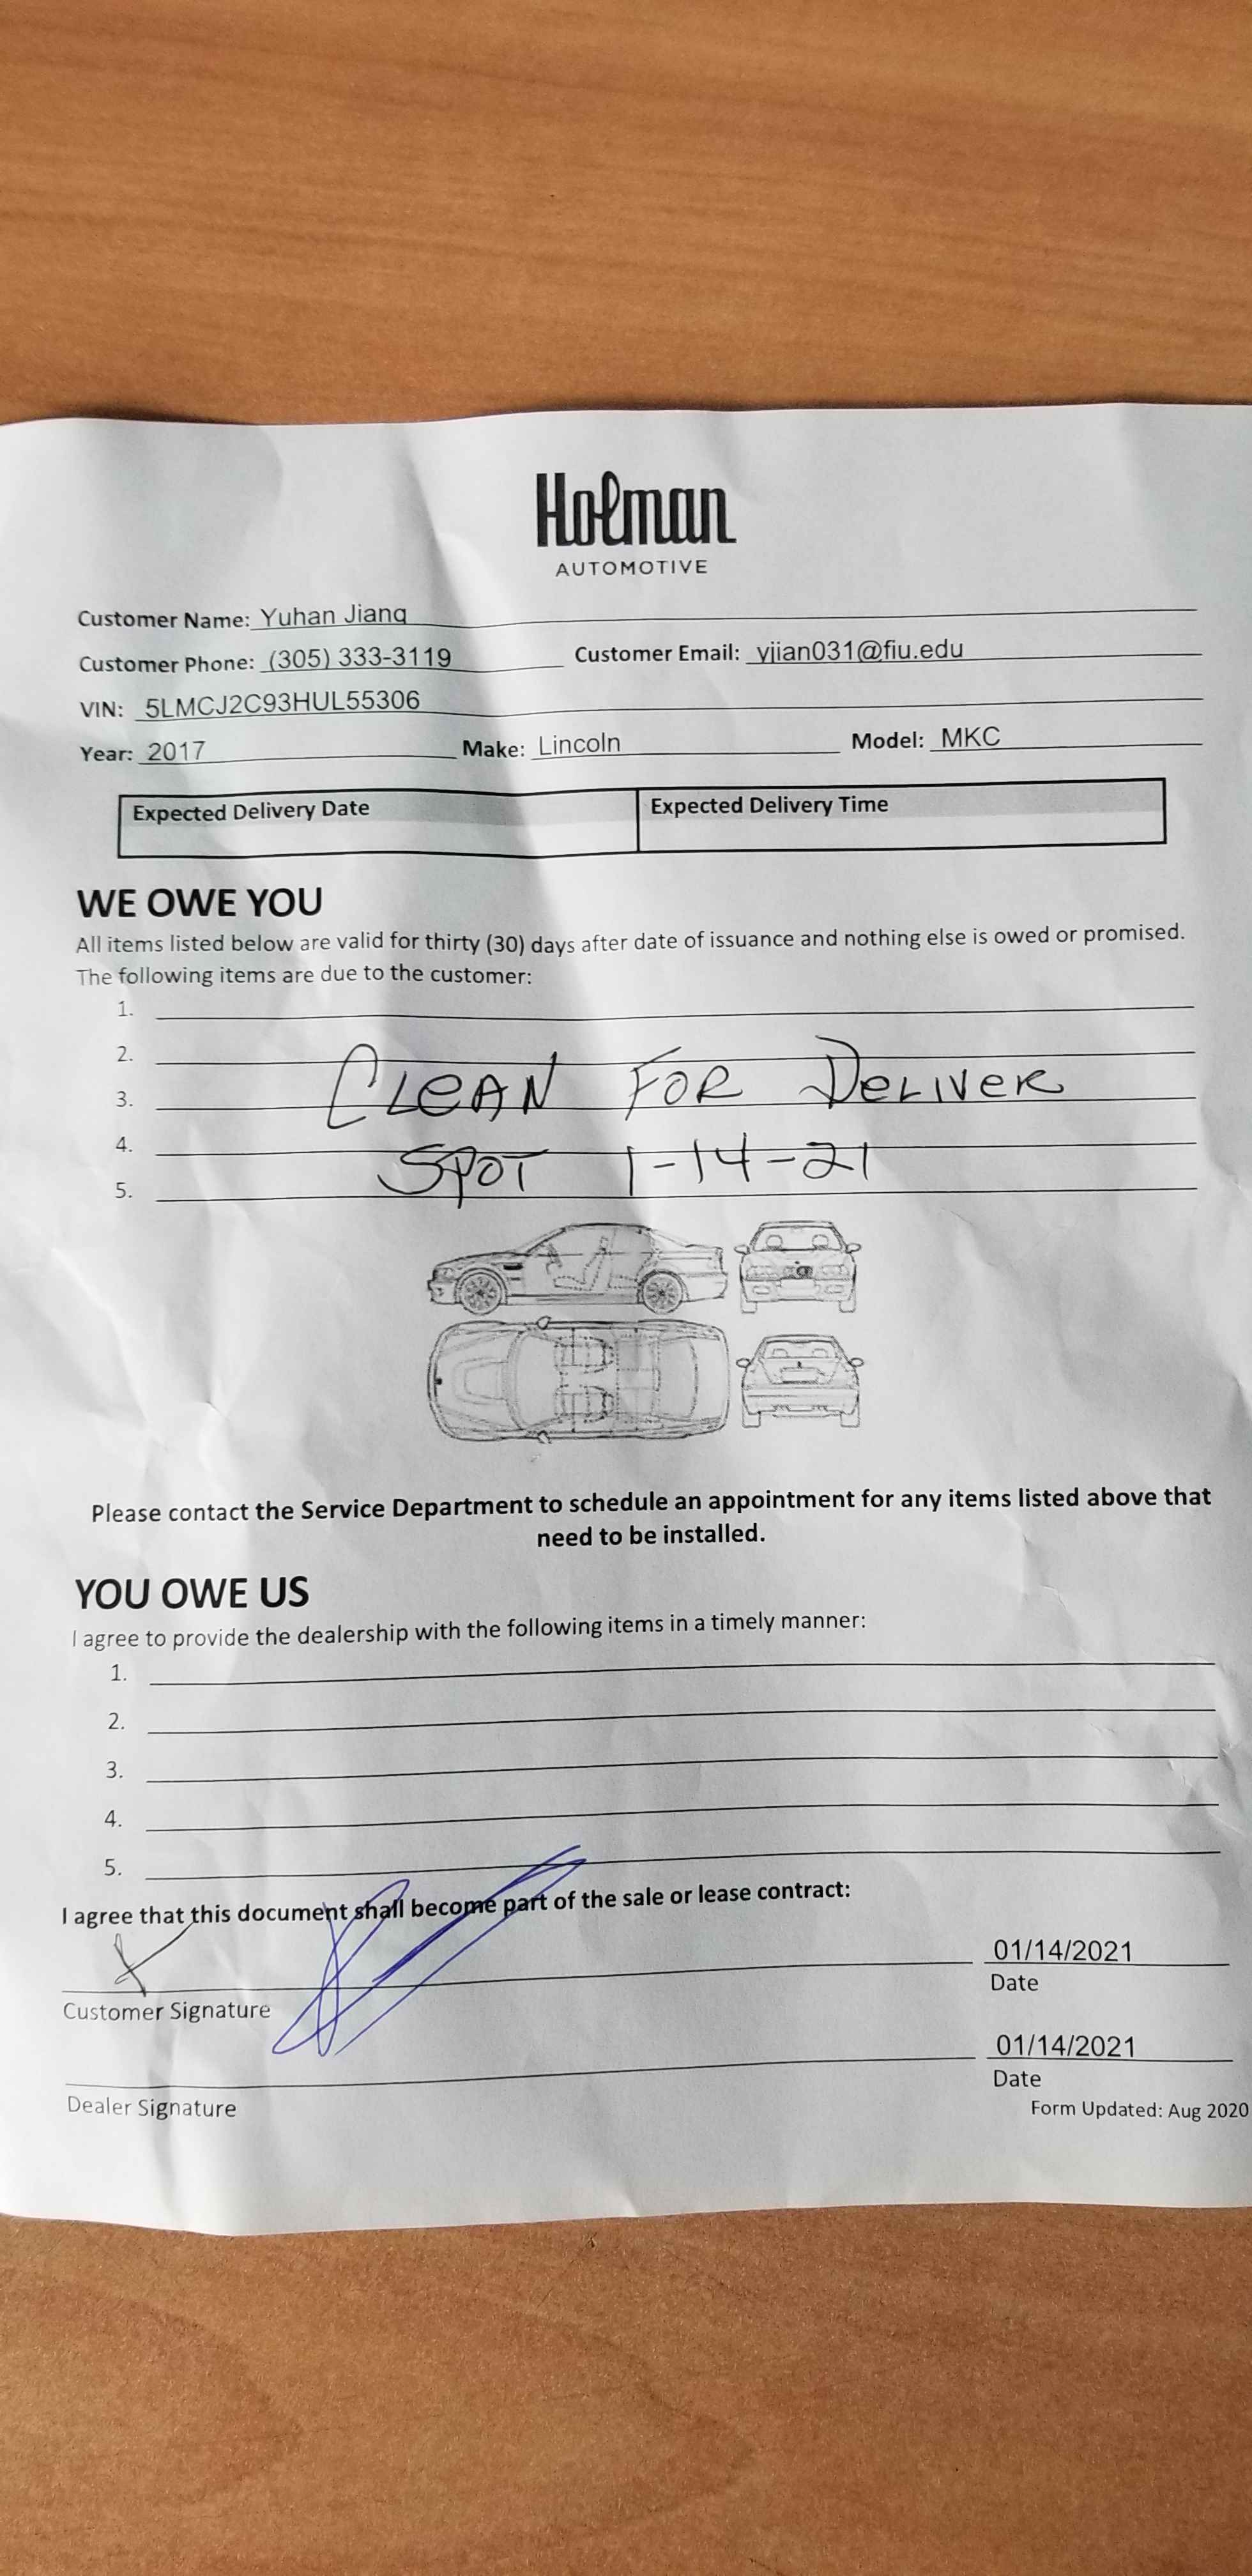 Holman
AUTOMOTIVE
Customer Name: Yuhan Jiang
Customer Phone: (305) 333-3119 Customer Email: yjian031@fiu.edu
VIN: 5LMCJ2C93HUL55306
Year: 2017 Make: Lincoln Model: MKC
Expected Delivery Date Expected Delivery Time
WE OWE YOU
All items listed below are valid for thirty (30) days after date of issuance and nothing else is owed or promised.
The following items are due to the customer:
1.
2.
CLEAN FOR DELIVER
3.
4.
SPOT 1-14-21
5.
Please contact the Service Department to schedule an appointment for any items listed above that
need to be installed.
YOU OWE US
I agree to provide the dealership with the following items in a timely manner:
1.
2.
3.
4.
5.
I agree that this document shall become part of the sale or lease contract:
X 01/14/2021
Customer Signature Date
01/14/2021
Dealer Signature Date
Form Updated: Aug 2020